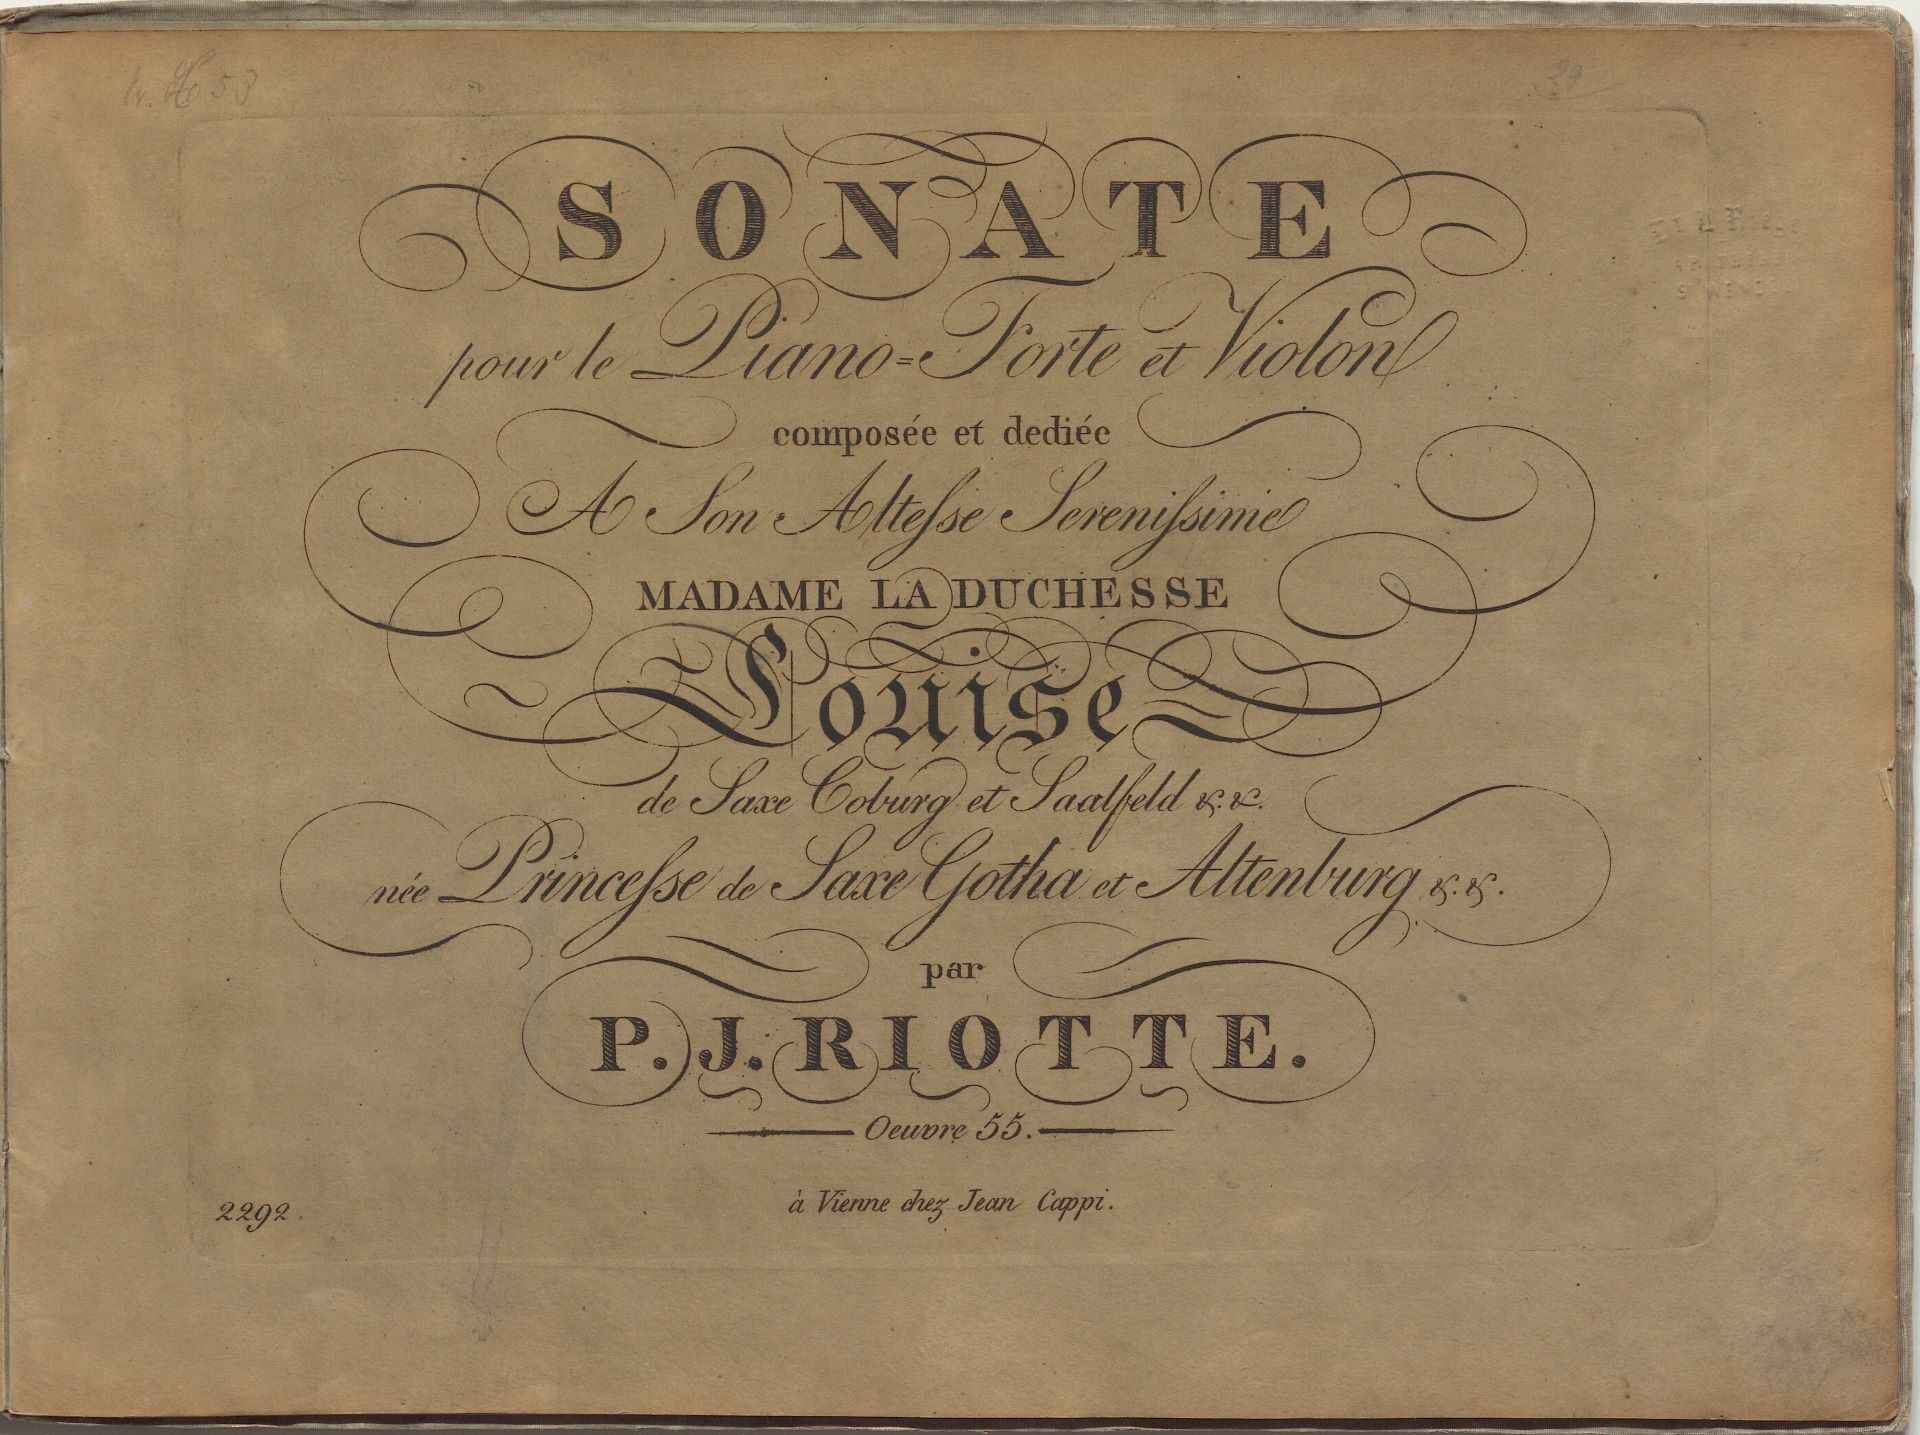 53
29
SONATE
pour le Piano=Forte et Violon
composée et dediée
A Son Alteſse Sereniſsime
MADAME LA DUCHESSE
Louise
de Saxe Coburg et Saalfeld &. &.
née Princeſse de Saxe Gotha et Altenburg &. &.
par
P. J. RIOTTE.
Oeuvre 55.
à Vienne chez Jean Cappi.
2292.